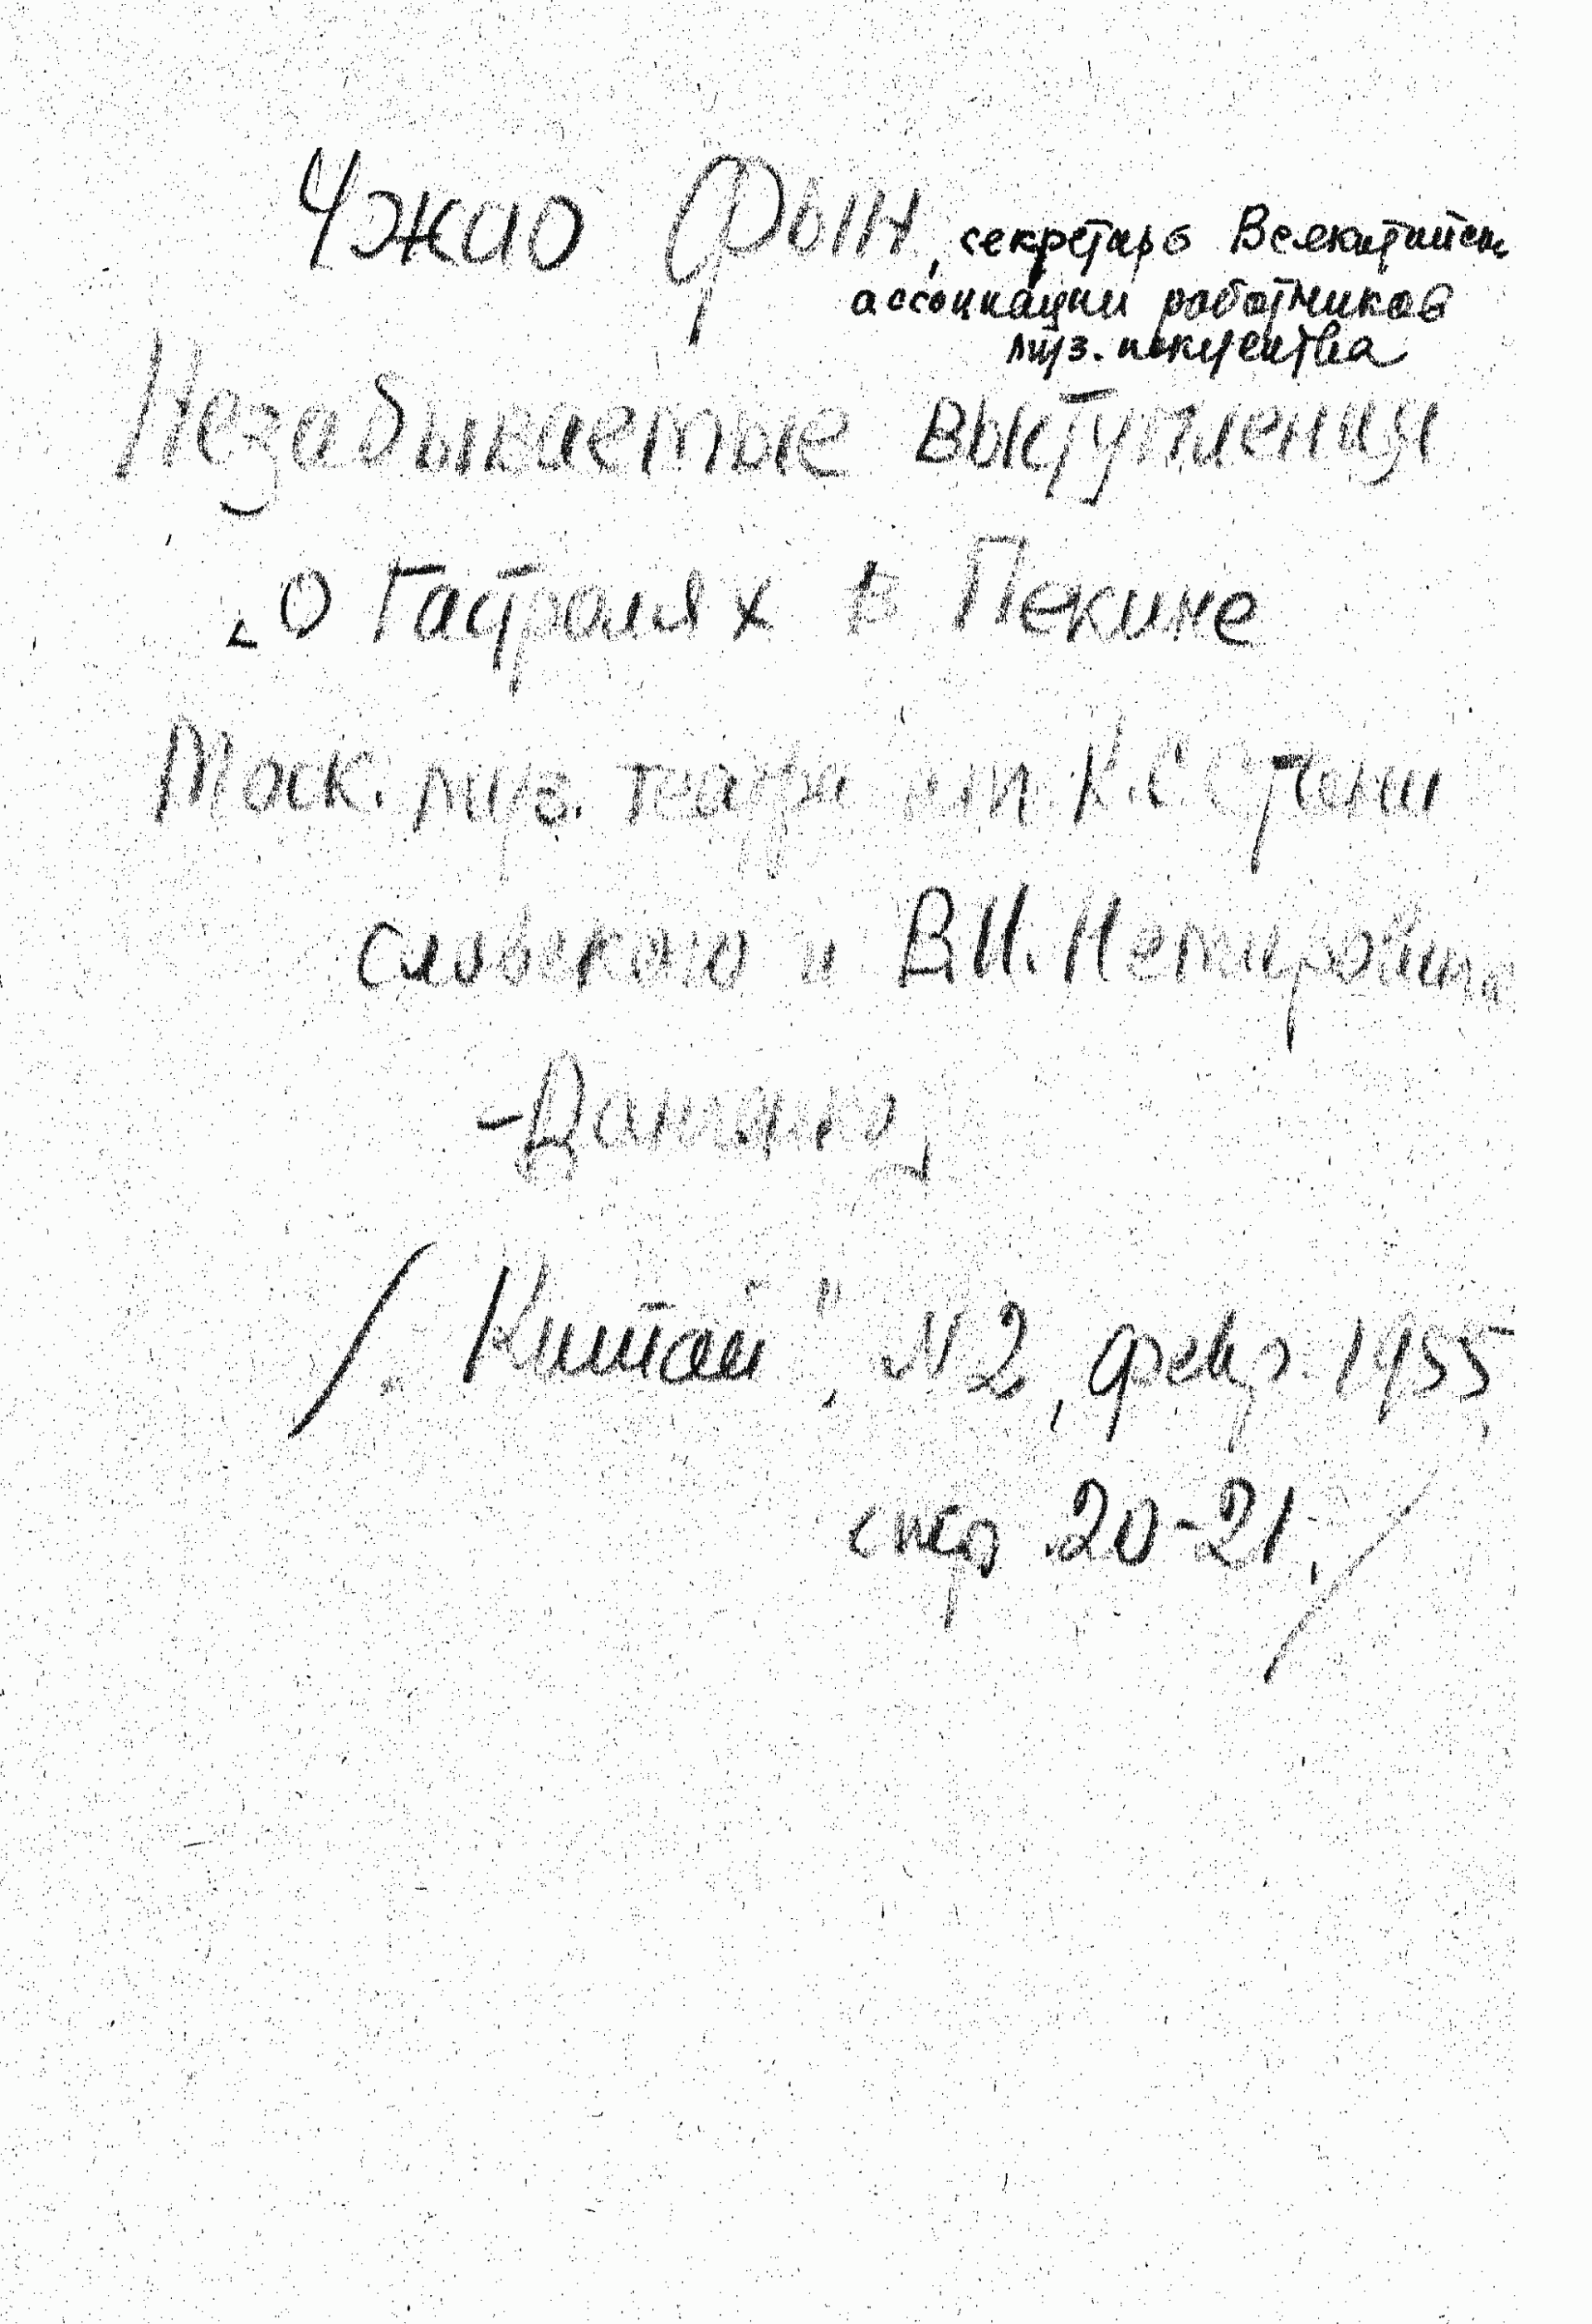 Чжао Фын, секретарь Всекитайск
ассоциации работников
муз. искусства
Незабываемые выступления
<О гастролях в Пекине
Моск. муз. театра им. К.С. Стани
славского и В.И. Немировича
-Данченко>
/"Китай", N2, февр. 1955,
стр 20-21./